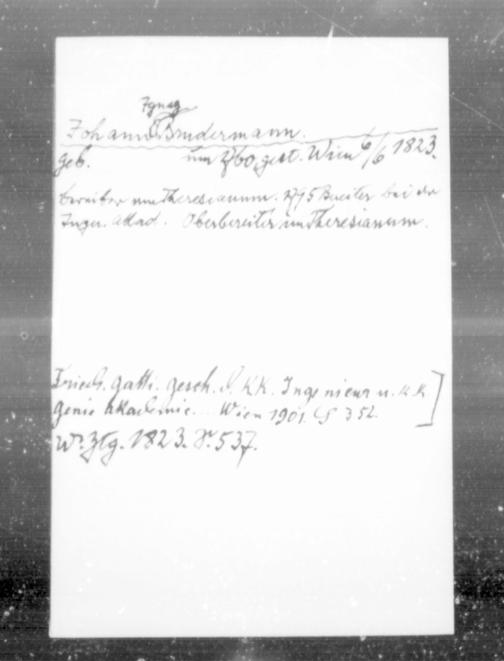 Ignaz
Johann Bindermann.
geb. um 1760, gest. Wien 6/6 1823.
Bereiter am Theresianum. 1795 Bereiter bei der
Ingen. Akad. Oberbereiter im Theresianum.
Friedr. Gatti. Gesch. d. KK. Ingenieur u. KK
Genie Akademie... Wien 1901. S 352.
Wr. Ztg. 1823. S. 537.